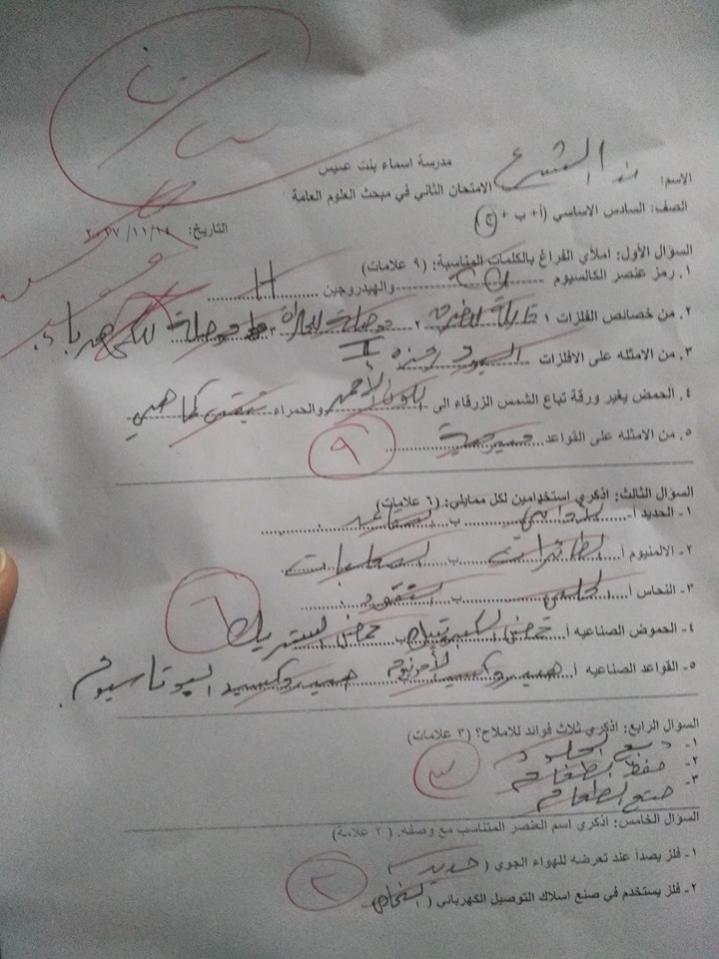 مدرسة اسماء بنت عميس
الاسم: الشرع
الامتحان الثاني في مبحث العلوم العامة
الصف: السادس الاساسي (أ + ب + ج)
التاريخ:
السؤال الأول: املأي الفراغ بالكلمات المناسبة: (٩ علامات)
١. رمز عنصر الكالسيوم Ca والهيدروجين H
٢. من خصائص الفلزات ١ قابلة للطرق ٢- موصلة للحرارة ٣ موصلة للكهرباء.
٣. من الامثله على الافلزات اليود رمزه I
٤. الحمض يغير ورقة تباع الشمس الزرقاء الى اللون الأحمر والحمراء تبقى كما هي
٥. من الامثله على القواعد
٩
السؤال الثالث: اذكري استخدامين لكل ممايلي: (٦ علامات)
١- الحديد أ- ب
٢- الالمنيوم أ الطائرات ب
٣- النحاس أ ب النقود
٤- الحموض الصناعيه أ حمض الكبرتيك ب حمض النتريك
٥- القواعد الصناعيه أ هيدروكسيد الأمونيوم هيدروكسيد البوتاسيوم.
٦
السؤال الرابع: اذكري ثلاث فوائد للاملاح؟ (٣ علامات)
١- دبغ الجلود
٢- حفظ الطعام
٣- صنع الطعام
٣
السؤال الخامس: اذكري اسم العنصر المتناسب مع وصفه. (٢ علامة)
١- فلز يصدأ عند تعرضه للهواء الجوي (حديد)
٢- فلز يستخدم في صنع اسلاك التوصيل الكهربائي (النحاس)
٢